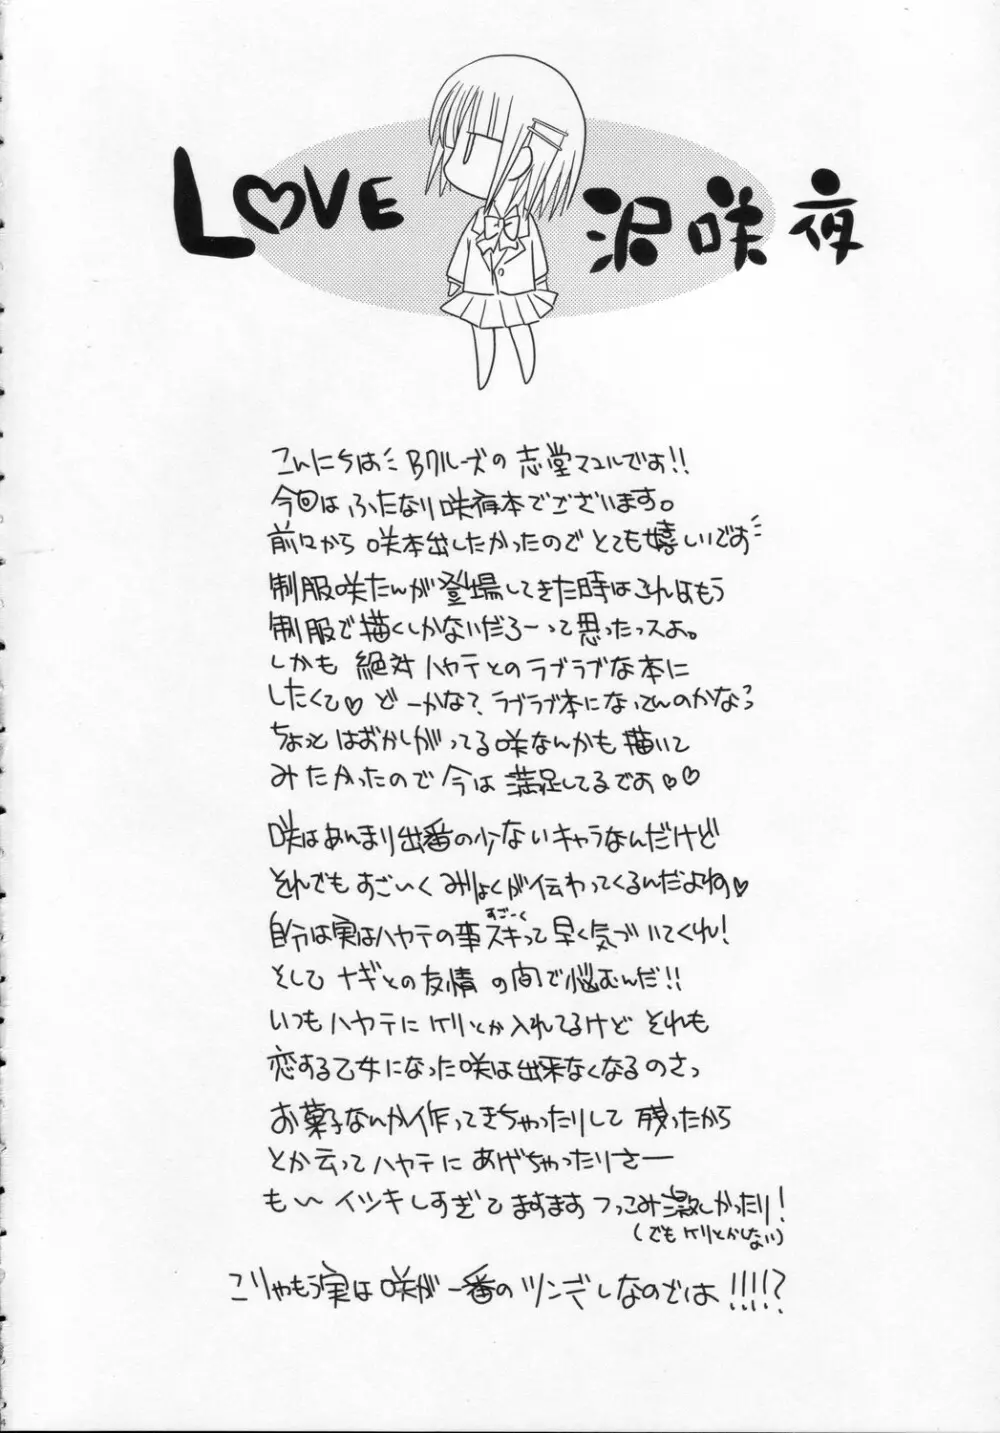 LOVE 沢咲夜
こんにちは Bクルーズの 志堂マユルです!!
今回は ふたなり咲夜本でございます。
前々から 咲本出したかったので とても嬉しいです
制服咲たんが登場してきた時はこれはもう
制服で描くしかないだろーって思ったっスよ。
しかも 絶対ハヤテとのラブラブな本に
したくて♡ どーかな?ラブラブ本になってんのかなっ
ちょっと はおかしがってる咲なんかも描いて
みたかったので今は満足してるです♡♡
咲はあんまり出番の少ないキャラなんだけど
それでもすごいくみりょくが伝わってくるんだよね♡
自分は実はハヤテの事スキって早く気づいてくれ!
すごーく
そしてナギとの友情の間で悩むんだ!!
いつもハヤテにケリとか入れてるけど それも
恋する乙女になった咲は出来なくなるのさっ
お菓子なんか作ってきちゃったりして 残ったから
とか云ってハヤテに あげちゃったりさー
も〜イツキしすぎて ますますつっこみ激しかったり!
(でもケリとかしない)
こりゃもう実は咲が一番のツンデレなのでは!!!!?